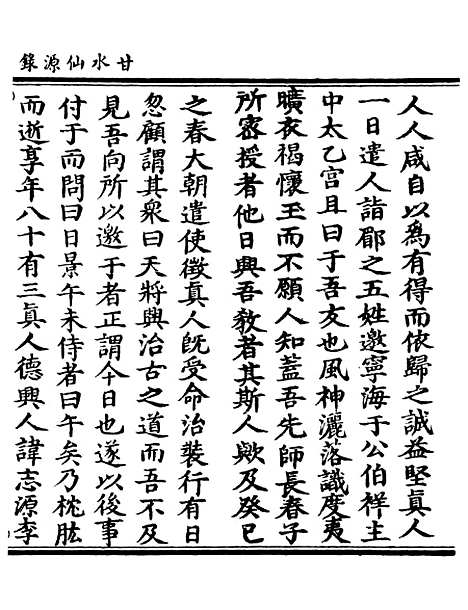 甘水仙源錄
人人咸自以爲有得而依歸之誠益堅眞人
一日遣人詣郿之五姓邀寧海于公伯祥主
中太乙宮且曰于吾友也風神灑落識度夷
曠衣褐懷玉而不願人知蓋吾先師長春子
所密授者他日興吾敎者其斯人歟及癸巳
之春大朝遣使徵眞人旣受命治裝行有日
忽顧謂其衆曰天將興治古之道而吾不及
見吾向所以邀于者正謂今日也遂以後事
付于而問曰日景午未侍者曰午矣乃枕肱
而逝享年八十有三眞人德興人諱志源李